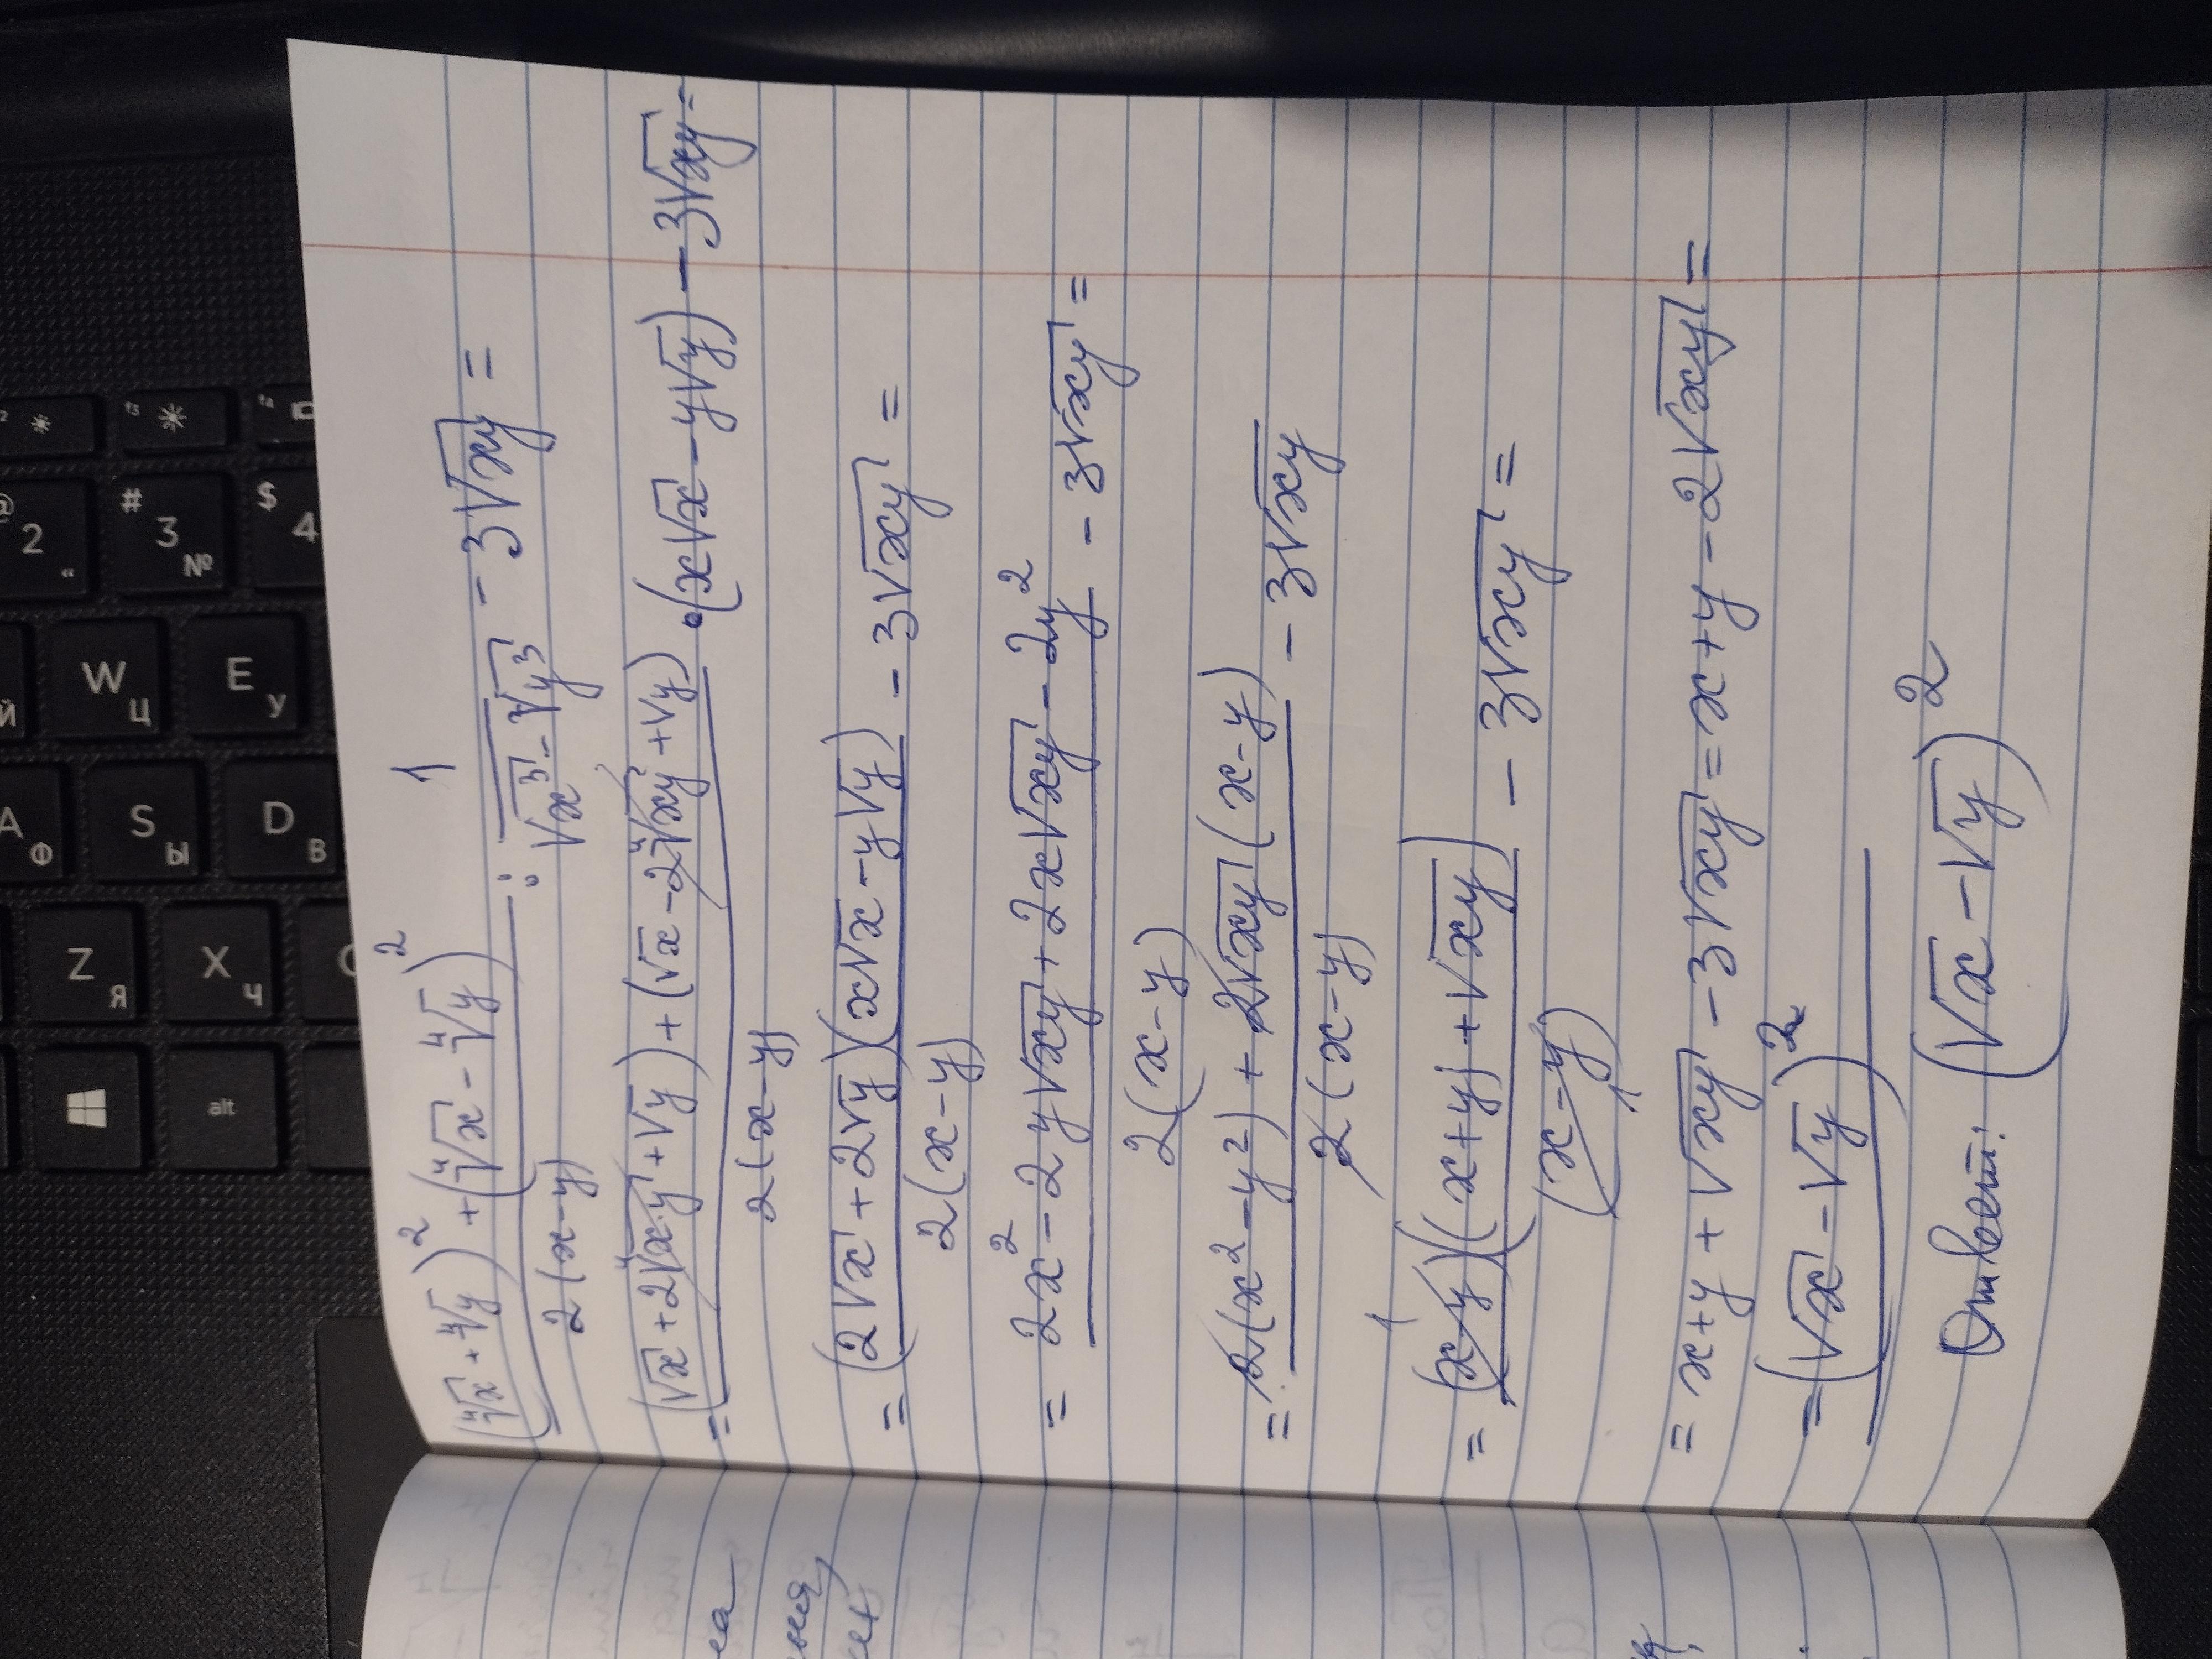 ((⁴√x + ⁴√y)² + (⁴√x - ⁴√y)²) / (2(x-y)) : 1 / (√x³ - √y³) - 3√xy =
= ((√x + 2⁴√x·y + √y) + (√x - 2⁴√xy + √y)) / (2(x-y)) · (x√x - y√y) - 3√xy =
= ((2√x + 2√y)(x√x - y√y)) / (2(x-y)) - 3√xy =
= (2x² - 2y√xy + 2x√xy - 2y²) / (2(x-y)) - 3√xy =
= (2(x² - y²) + 2√xy(x-y)) / (2(x-y)) - 3√xy
= ((x-y)(x+y) + √xy) / (x-y) - 3√xy =
= x+y + √xy - 3√xy = x+y - 2√xy =
= (√x - √y)²
Ответ: (√x - √y)²
2
*
*
@ 2 "
# 3 №
$ 4
й
W Ц
E У
A Ф
S Ы
D В
Z Я
X Ч
C
alt
ма
ния